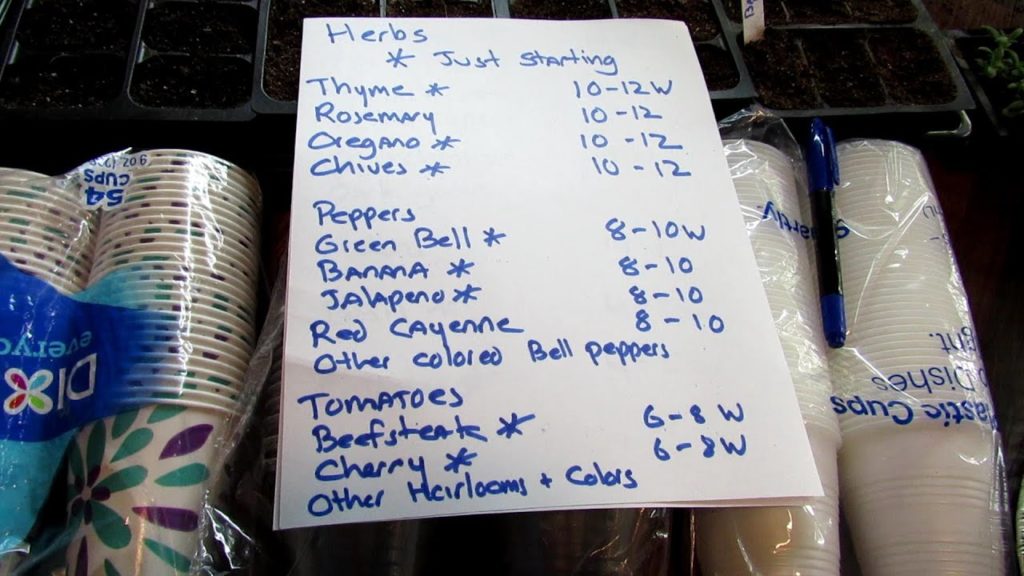 Herbs
* Just starting
Thyme * 10-12W
Rosemary 10-12
Oregano * 10-12
Chives * 10-12
Peppers
Green Bell * 8-10W
BANANA * 8-10
JAlapeno * 8-10
Red CAyenne 8-10
Other colored Bell peppers
TOMATOES
Beefsteak * 6-8 W
Cherry * 6-8W
Other Heirlooms + Colors
54
CUPS
9 OZ
DIX
everyd
Dishes
astic Cups